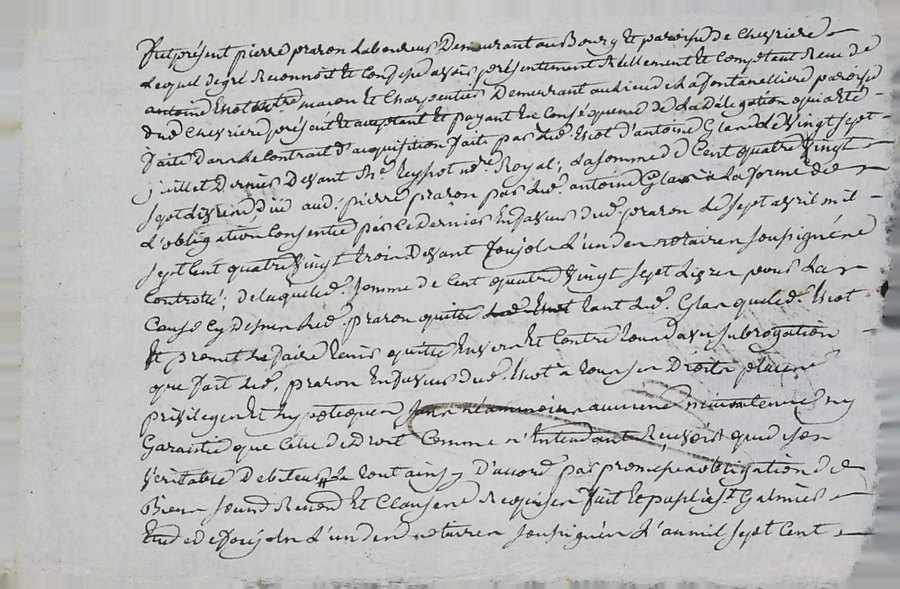 Fut présent pierre prazon Laboureur Demeurant au Bourg et paroisse de Chevriere
Lequel degré Reconnoit et Confesse avoir présentement Réellement et Comptant Receu de
antoine maçon et Charpentier Demeurant au lieu de La fontanelliere paroisse
dud Chevriere présent et acceptant et payant En Conséquence de La Délégation quia été
faite Dans Le Contrat d'acquisition faite par led. d'antoine Glas Le Vingt sept
juillet Dernier Devant Me. Reyssot nre. Royal; La somme de Cent quatre Vingt
sept Livres Due aud. pierre prazon par led. antoine Glas à La forme de
L'obligation Consentie par Le Dernier En faveur dud. prazon Le sept avril mil
sept Cent quatre Vingt trois Devant L'un des notaires soussignés
Controllé; de laquelle somme de Cent quatre Vingt sept Livres pour La
Cause Cy Dessus Led. prazon quitte tant Led. Glas que Led.
Et promet Le faire tenir quitte Envers et Contre tous avec subrogation
que fait Led. prazon En faveur dud. a tous ses Droits places
privileges et hypoteques sans néammoins aucune maintenue ny
Garantie que Celle de Droit Comme n'Entendant Recevoir que de son
Veritable Debiteur Le tout ainsy D'accord par promesse obligation de
Biens soumission Renon. et Clauses Requises fait et passé a St. Galmier
Etude de L'un des notaires soussignés L'an mil sept Cent